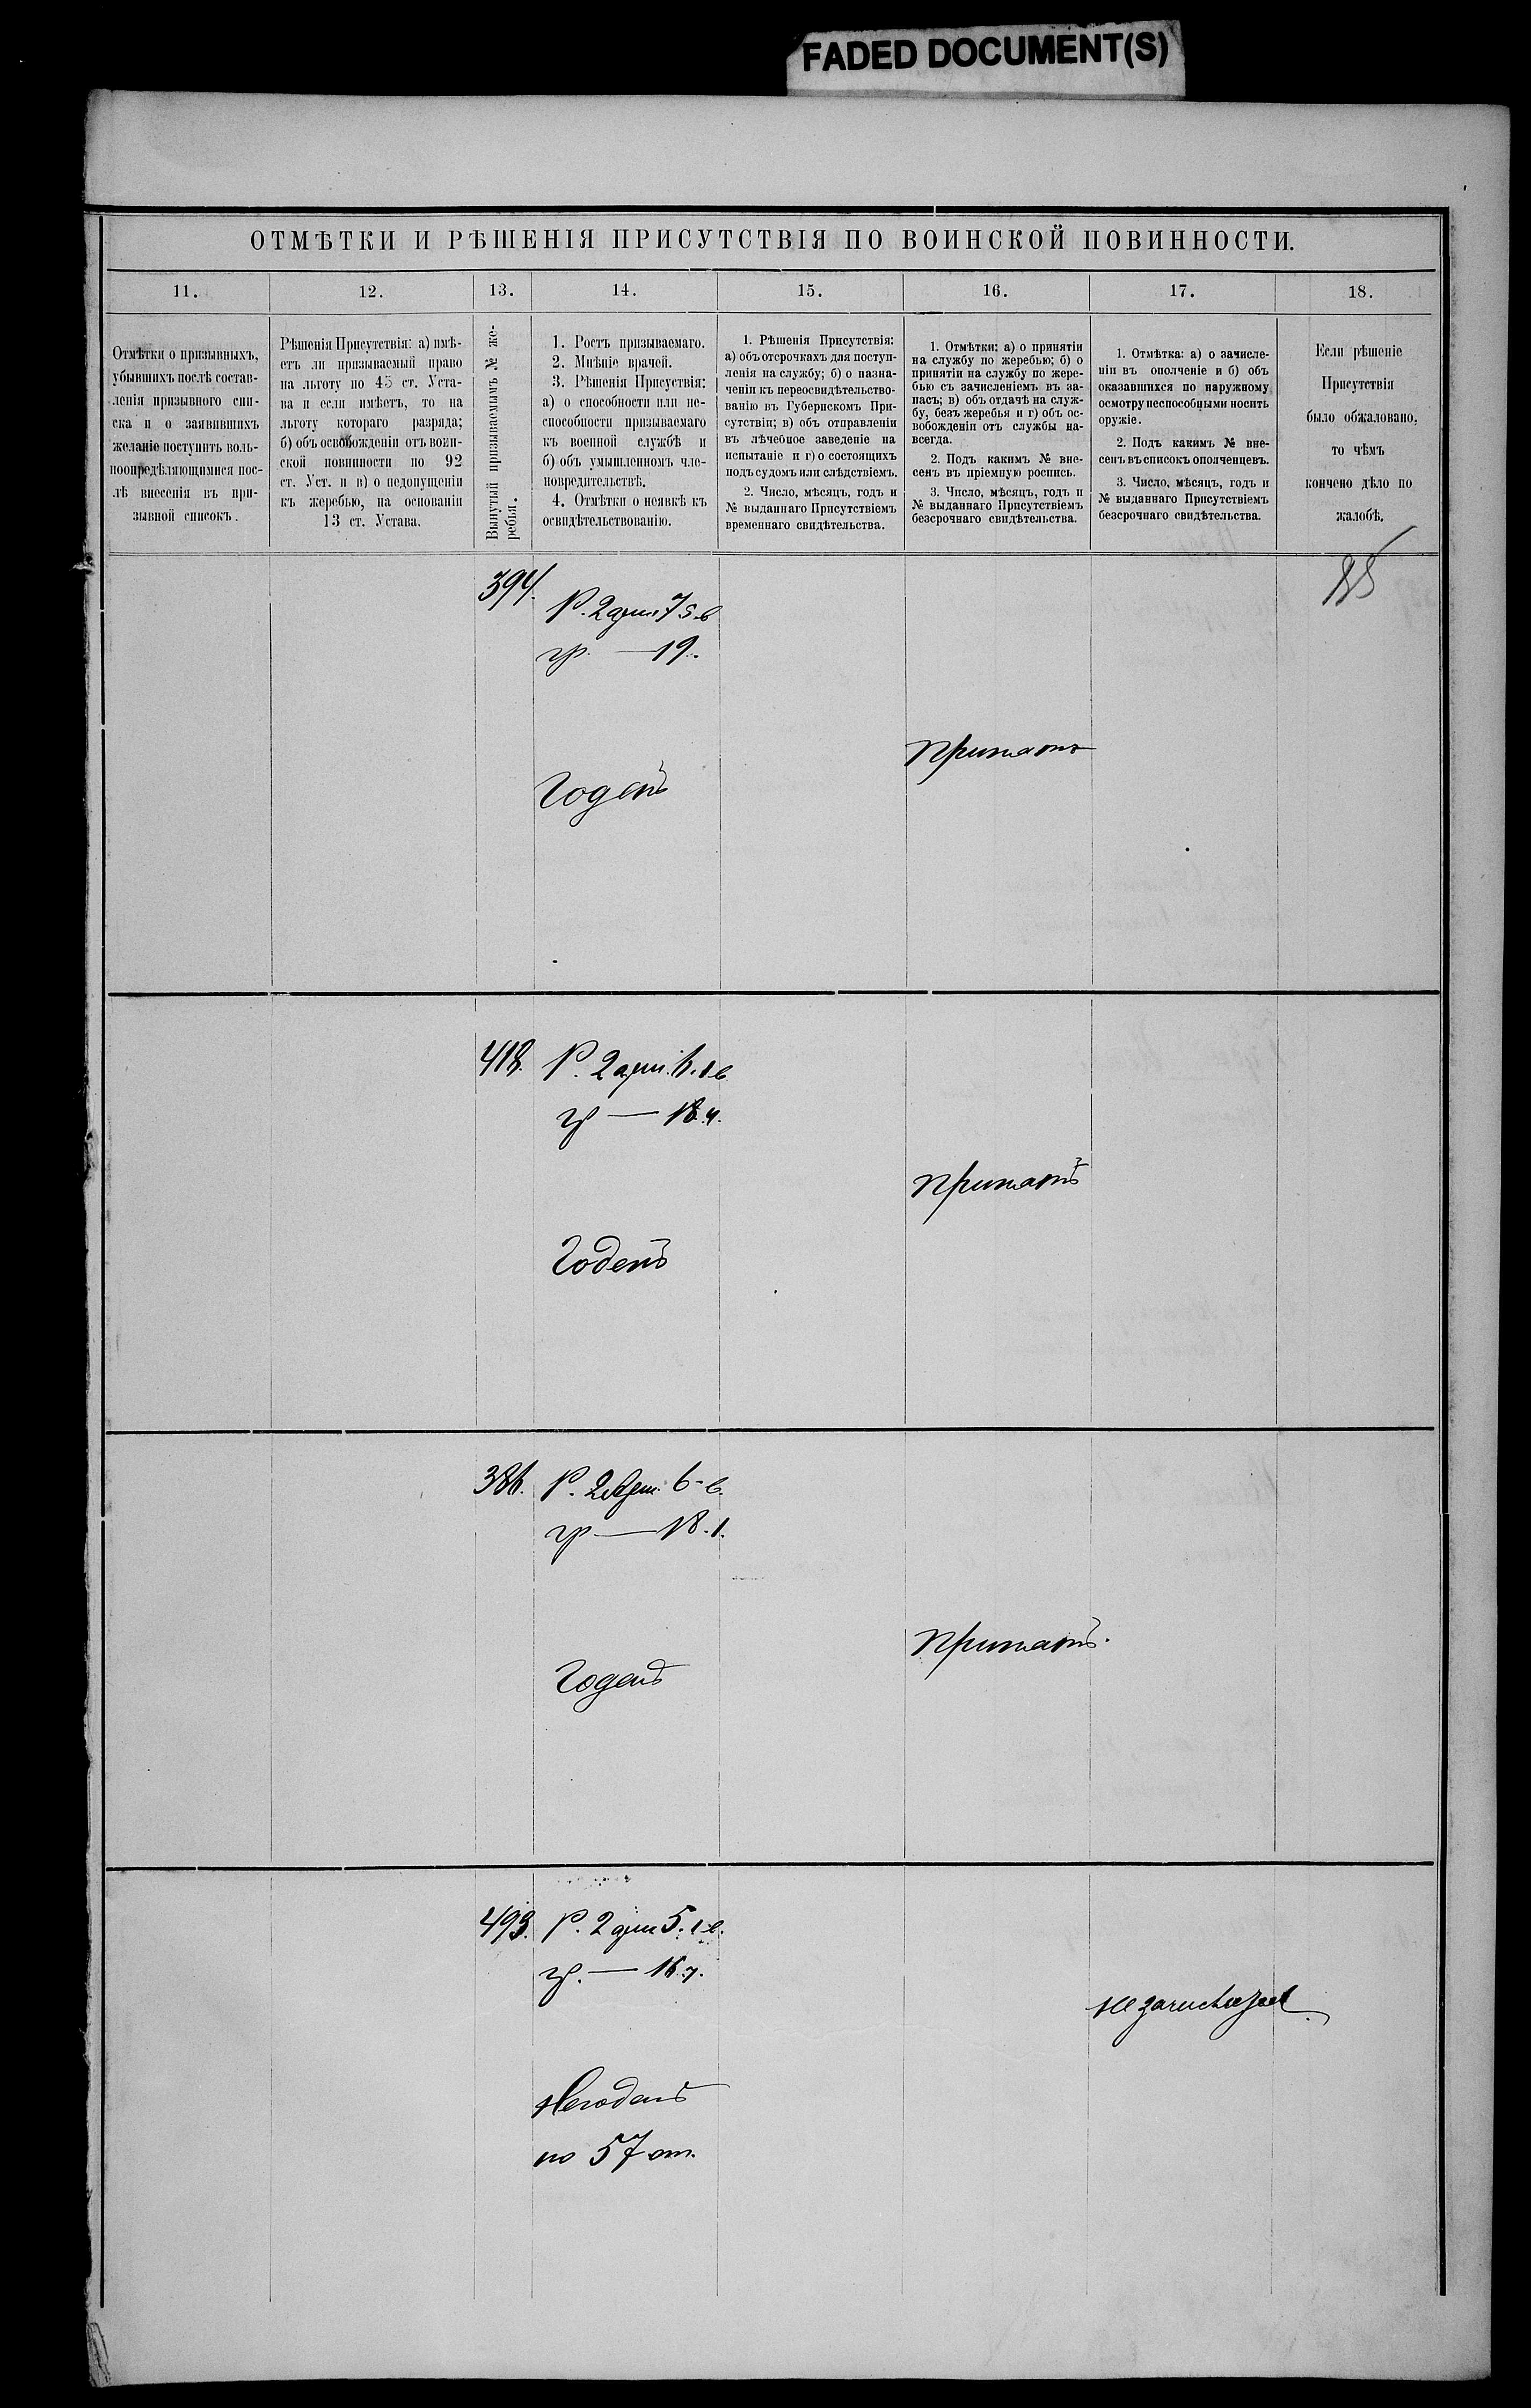 FADED DOCUMENT(S)
ОТМѢТКИ И РѢШЕНІЯ ПРИСУТСТВІЯ ПО ВОИНСКОЙ ПОВИННОСТИ.
11.
12.
13.
14.
15.
16.
17.
18.
Отмѣтки о призывныхъ,
убывшихъ послѣ состав-
ленія призывного спи-
ска и о заявившихъ
желаніе поступить воль-
ноопредѣляющимися пос-
лѣ внесенія въ при-
зывной списокъ.
Рѣшенія Присутствія: а) имѣ-
етъ ли призываемый право
на льготу по 45 ст. Уста-
ва и если имѣетъ, то на
льготу котораго разряда;
б) объ освобожденіи отъ воин-
ской повинности по 92
ст. Уст. и в) о недопущеніи
къ жеребью, на основаніи
13 ст. Устава.
Вынутый призываемымъ № же-
ребья.
1. Ростъ призываемаго.
2. Мнѣніе врачей.
3. Рѣшенія Присуствія:
а) о способности или не-
способности призываемаго
къ военной службѣ и
б) объ умышленномъ чле-
новредительствѣ.
4. Отмѣтки о неявкѣ къ
освидѣтельствованію.
1. Рѣшенія Присутствія:
а) объ отсрочкахъ для поступ-
ленія на службу; б) о назна-
ченіи къ переосвидѣтельство-
ванію въ Губернскомъ При-
сутствіи; в) объ отправленіи
въ лѣчебное заведеніе на
испытаніе и г) о состоящихъ
подъ судомъ или слѣдствіемъ.
2. Число, мѣсяцъ, годъ и
№ выданнаго Присутствіемъ
временнаго свидѣтельства.
1. Отмѣтки: а) о принятіи
на службу по жеребью; б) о
принятіи на службу по жере-
бью съ зачисленіемъ въ за-
пасъ; в) объ отдачѣ на служ-
бу, безъ жеребья и г) объ ос-
вобожденіи отъ службы на-
всегда.
2. Подъ какимъ № вне-
сенъ въ пріемную роспись.
3. Число, мѣсяцъ, годъ и
№ выданнаго Присутствіемъ
безсрочнаго свидѣтельства.
1. Отмѣтка: а) о зачисле-
ніи въ ополченіе и б) объ
оказавшихся по наружному
осмотру неспособными носить
оружіе.
2. Подъ какимъ № вне-
сенъ въ списокъ ополченцевъ.
3. Число, мѣсяцъ, годъ и
№ выданнаго Присутствіемъ
безсрочнаго свидѣтельства.
Если рѣшеніе
Присутствія
было обжаловано,
то чѣмъ
кончено дѣло по
жалобѣ.
394.
Р. 2 арш 7 5 в
гр. — 19.
Годенъ
Принятъ
418.
Р. 2 арш. 6. 1 в
гр — 18.4.
Годенъ
Принятъ
386.
Р. 2 Арш. 6 - в.
гр — 18.1.
Годенъ
Принятъ.
493.
Р. 2 арш 5. 1 в.
гр. — 16.7.
Негоденъ
по 57 ст.